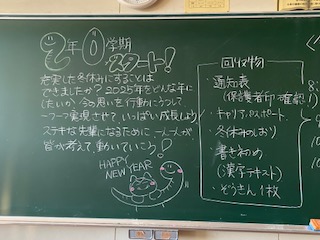 2年0学期
スタート!
充実した冬休みにすることは
できましたか?2025年をどんな年に
したいか今の思いを行動にうつして
一つ一つ実現させて、いっぱい成長しよう
ステキな先輩になるために、一人一人が
皆が考えて動いていこう!
HAPPY
NEW
YEAR
回収物
・通知表
(保護者印確認)
・キャリアパスポート
・冬休みのしおり
・書き初め
(漢字テキスト)
・ぞうきん1枚